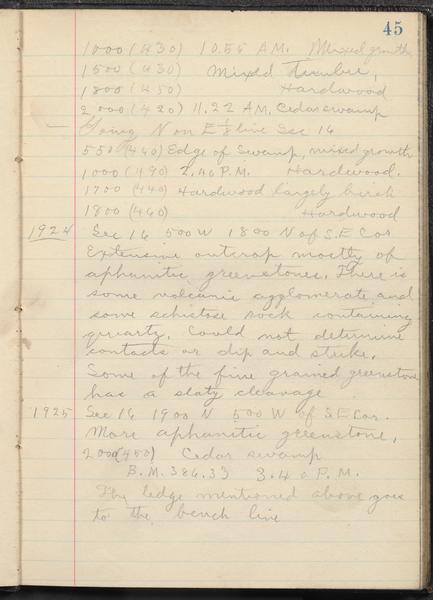 45
1000 (430) 10.55 A.M. Mixed growth
1500 (430) Mixed Timber,
1800 (450) Hardwood
2000 (420) 11.22 A.M. Cedar swamp
— Going N on E 1/8 line Sec 16
550 (440) Edge of Swamp, mixed growth
1000 (490) 2.40 P.M. Hardwood.
1700 (440) Hardwood largely birch
1800 (460) Hardwood
1924 Sec 16 500 W 1800 N of S.E Cor
Extensive outcrop mostly of
aphanitic greenstones. There is
some volcanic agglomerate and
some schistose rock containing
quartz. Could not determine
contacts or dip and strike.
Some of the fine grained greenstone
has a slaty cleavage
1925 Sec 16 1900 N 500 W of S.E Cor.
More aphanitic greenstone.
2000 (450) Cedar swamp
B.M. 386.33 3.40 P.M.
The ledge mentioned above goes
to the bench line